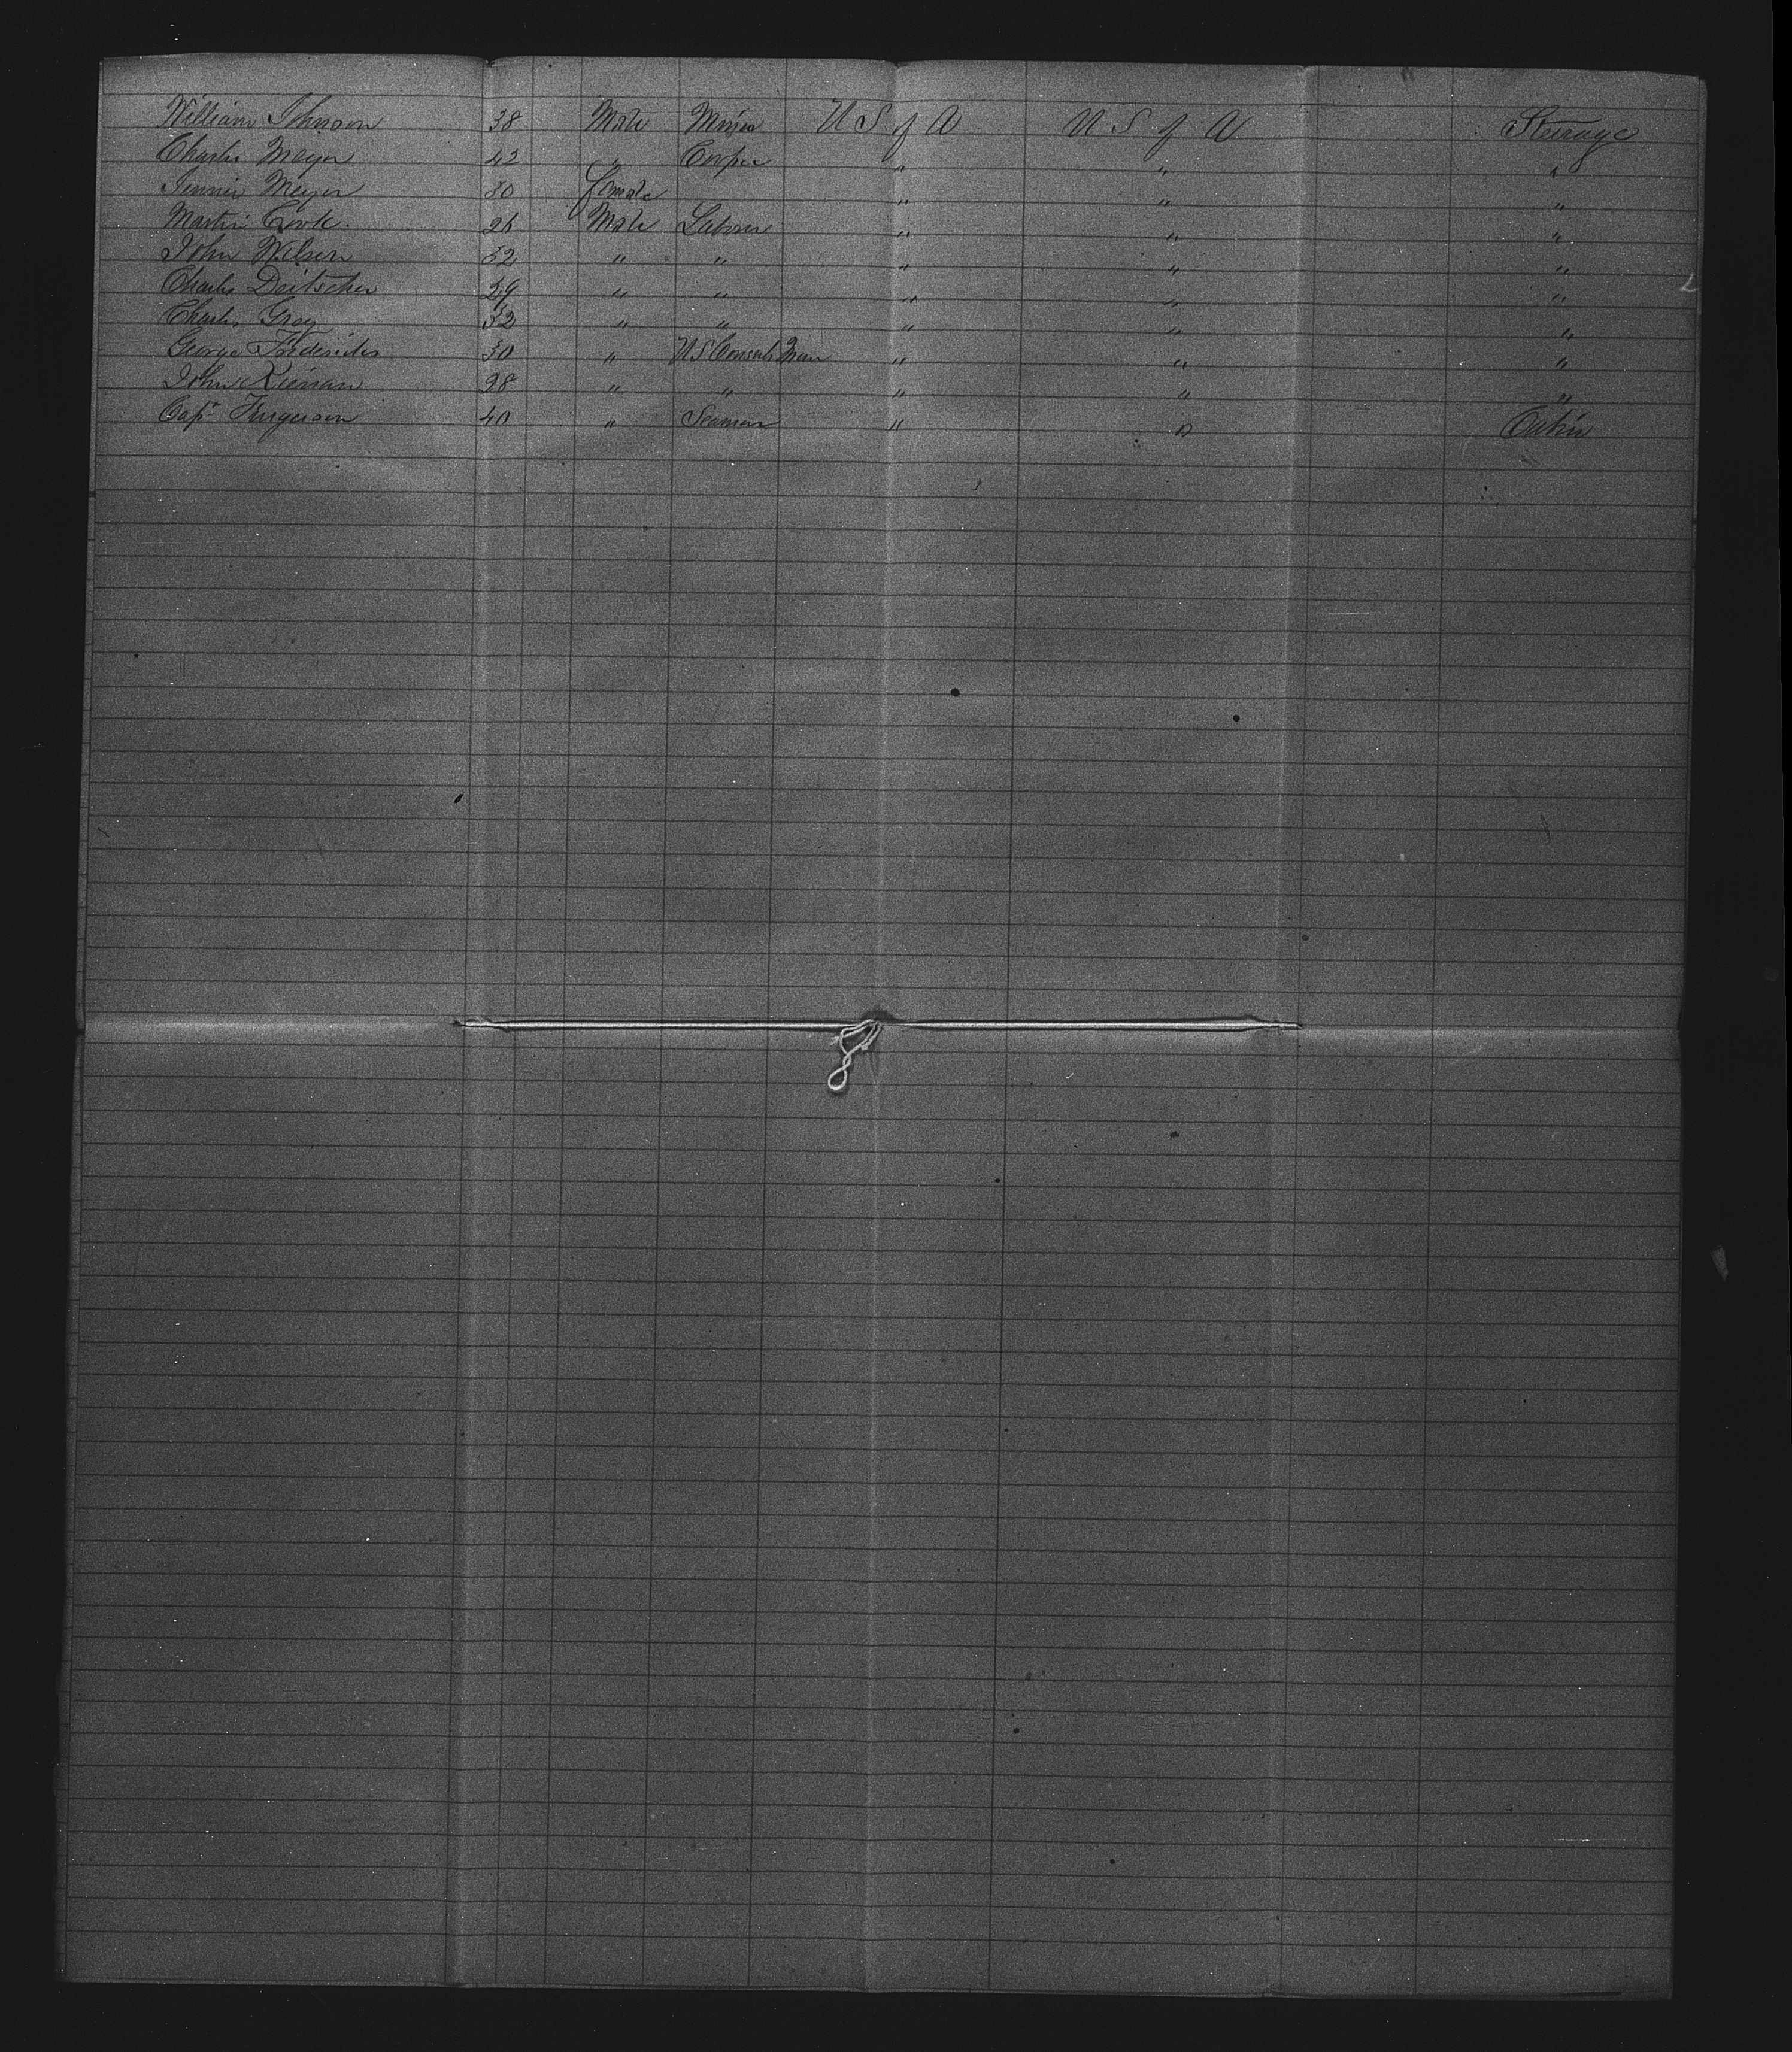 William Johnson 38 Male Miner U S of A U S of A Steerage
Charles Meyer 42 " Cooper " " "
Jennie Meyer 30 female " " "
Martin Cook. 26 Male Laborer " " "
John Wilsen 32 " " " " "
Charles Deitscher 29 " " " " "
Charles Gray 32 " " " " "
George Fredericks 30 " U S Consuls Man " " "
John Kiernan 28 " " " " "
Capt Furgerson 40 " Seaman " " Cabin